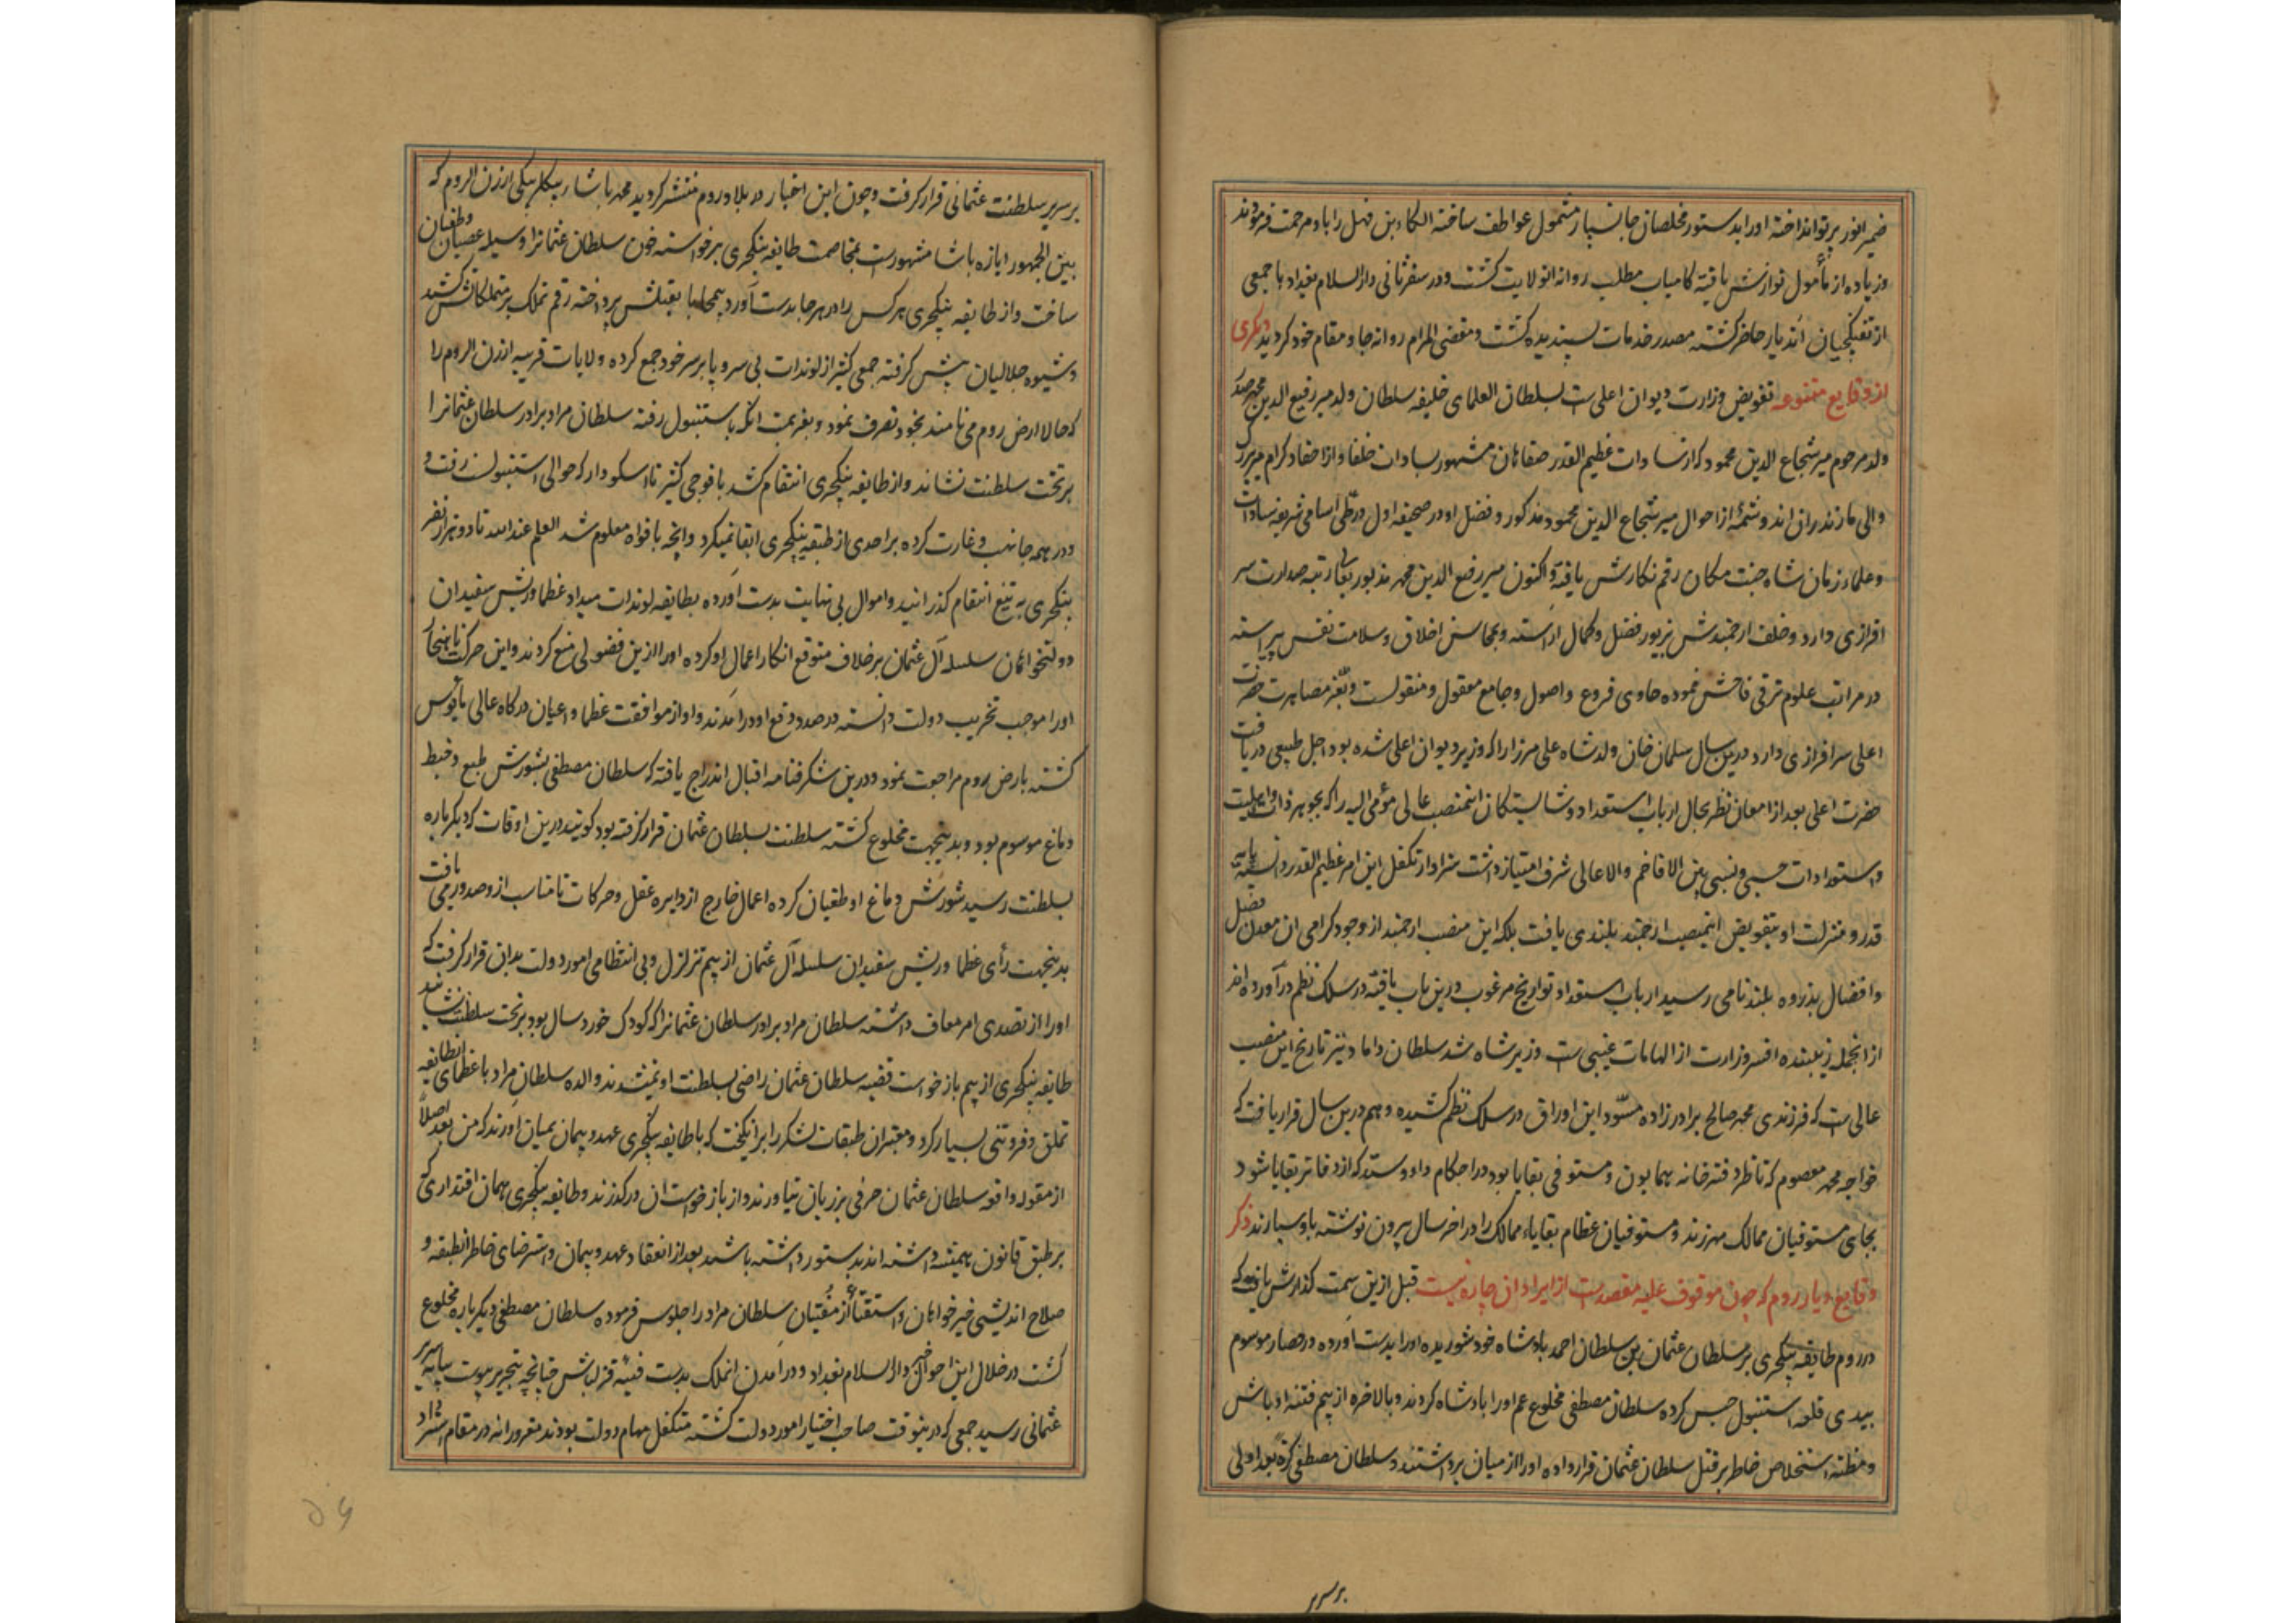 ضمیر انور پرتو انداخته او را بدستور مخلصان جانسپار مشمول عواطف ساخته الکاء بن فهل را باو مرحمت فرمودند
و زیاده از مأمول نوازش یافته کامیاب مطلب روانه انولایت گشت و در سفر ثانی دارالسلام بغداد با جمعی
از تفنکچیان آندیار حاضر گشته مصدر خدمات پسندیده گشت و مقضی المرام روانه جا و مقام خود گردید دیگری
از وقایع متنوعه تفویض وزارت دیوان اعلی است بسلطان العلمای خلیفه سلطان ولد میر رفیع الدین محمد صدر
ولد مرحوم میر شجاع الدین محمود که از سادات عظیم القدر صفاهان مشهور بسادات خلفا و از احفاد کرام میر بزرگ
والی مازندران اند و شمهٔ از احوال میر شجاع الدین محمود مذکور و فضل او در صحیفه اول در طی اسامی شریفه سادات
و علماء زمان شاه جنت مکان رقم نگارش یافته و اکنون میر رفیع الدین محمد مزبور بعالی رتبه صدارت سر
افرازی دارد و خلف ارجمندش بزیور فضل و کمال آراسته و بمحاسن اخلاق و سلامت نفس پیراسته
در مراتب علوم ترقی فاحش نموده حاوی فروع و اصول و جامع معقول و منقولست و بعز مصاهرت حضرت
اعلی سرافرازی دارد درین سال سلمان خان ولد شاه علی میرزا را که وزیر دیوان اعلی شده بود اجل طبیعی دریافت
حضرت اعلی بعد از امعان نظر بحال ارباب استعداد و شایستکان اینمنصب عالی مومی الیه را که بجوهر ذات و اهلیت
و استعدادات حسبی و نسبی بین الافاخم والاعالی شرف امتیاز داشت سزاوار تکفل این امر عظیم القدر دانسته پایه
قدر و منزلت او بتفویض اینمنصب ارجمند بلندی یافت بلکه این منصب ارجمند از وجود گرامی ان معدن فضل
و افضال بذروه بلندنامی رسید ارباب استعداد تواریخ مرغوب درین باب یافته در سلک نظم درآورده اند
از انجمله زیبنده افسر وزارت از الهامات غیبی ست وزیر شاه شد سلطان داماد نیز تاریخ این منصب
عالی ست که فرزندی محمد صالح برادرزاده مسوّد این اوراق در سلک نظم کشیده و هم درین سال قرار یافت که
خواجه محمد معصوم که ناظر دفترخانه همایون و مستوفی بقایا بود در احکام داد و ستد که از دفاتر بقایا شود
بجای مستوفیان ممالک مهر زند و مستوفیان عظام بقایاء ممالک را در اخر سال بیرون نوشته باو سپارند ذکر
وقایع دیار روم که چون موقوف علیه مقصدست از ایراد ان چاره نیست قبل ازین سمت گذارش یافته که
در روم طایفه ینکچری بر سلطان عثمان بن سلطان احمد پادشاه خود شوریده او را بدست آورده در حصار موسوم
بیدی قلعه استنبول حبس کرده سلطان مصطفی مخلوع عم او را پادشاه کردند و بالاخره از بیم فتنه اوباش
و مظنه استخلاص خاطر بر قتل سلطان عثمان قرار داده او را از میان برداشتند و سلطان مصطفی کرّة بعد اولی
برسریر
بر سریر سلطنت عثمانی قرار گرفت و چون این اخبار در بلاد روم منتشر گردید محمد پاشا بیکلربیکی ارزن الروم که
بین الجمهور ابازه پاشا مشهورست بمخاصمت طایفه ینکچری برخواسته خون سلطان عثمانرا وسیله عصیان و طغیان
ساخت و از طایفه ینکچری هر کس را در هر جا بدست آورد بیمحابا بقتلش پرداخته رقم تملک بر متملکاتش کشید
و شیوه جلالیان پیش گرفته جمعی کثیر از لوندات بی سر و پا بر سر خود جمع کرده ولایات قریبه ارزن الروم را
که حالا ارض روم می نامند بخود تصرف نمود و بعزیمت انکه باستنبول رفته سلطان مراد برادر سلطان عثمانرا
بر تخت سلطنت نشاند و از طایفه ینکچری انتقام کشد با فوجی کثیر تا اسکودار که حوالی استنبولست رفت و
در همه جا نهب و غارت کرده بر احدی از طبقه ینکچری ابقا نمیکرد و انچه بافواه معلوم شد العلم عند الله تا دو هزار نفر
ینکچری به تیغ انتقام گذرانید و اموال بی نهایت بدست آورده بطایفه لوندات میداد عظما و ریش سفیدان
دولتخواهان سلسله آل عثمان برخلاف متوقع انکار اعمال او کرده او را ازین فضولی منع کردند و این حرکت ناهنجار
او را موجب تخریب دولت دانسته در صدد دفع او درآمدند و او از موافقت عظما و اعیان درگاه عالی مأیوس
گشته بارض روم مراجعت نمود و درین شکرفنامه اقبال اندراج یافته که سلطان مصطفی بشورش طبع و خبط
دماغ موسوم بود و بدینجهت مخلوع گشته سلطنت بسلطان عثمان قرار گرفته بود گویند درین اوقات که دیگرباره
بسلطنت رسید شورش دماغ او طغیان کرده اعمال خارج از دایره عقل و حرکات نامناسب ازو صدور می یافت
بدینجهت رأی عظما و ریش سفیدان سلسله آل عثمان از بیم تزلزل و بی انتظامی امور دولت بدان قرار گرفت که
او را از تصدی امر معاف داشته سلطان مراد برادر سلطان عثمانرا که کودک خورد سال بود بر تخت سلطنت نشانند
طایفه ینکچری از بیم بازخواست قضیه سلطان عثمان راضی بسلطنت او نمیشدند والده سلطان مراد با عظمای انطایفه
تملق و فروتنی بسیار کرد و معتبران طبقات لشکر را برانگیخت که با طایفه ینکچری عهد و پیمان بمیان آورند که من بعد اصلاً
از مقوله واقعه سلطان عثمان حرفی بر زبان نیاورند و از بازخواست ان درگذرند و طایفه ینکچری همان اقتداری که
بر طبق قانون همیشه داشته اند بدستور داشته باشند بعد از انعقاد عهد و پیمان و استرضای خاطر انطبقه و
صلاح اندیشی خیرخواهان و استفتاء از مفتیان سلطان مراد را جلوس فرموده سلطان مصطفی دیگرباره مخلوع
گشت در خلال این احوال خبر دارالسلام بغداد و درآمدن انملک بدست فئه قزلباش چنانچه بتحریر پیوست بپایه سریر
عثمانی رسید جمعی که درینوقت صاحب اختیار امور دولت گشته متکفل مهام دولت بودند مغرورانه در مقام استرداد